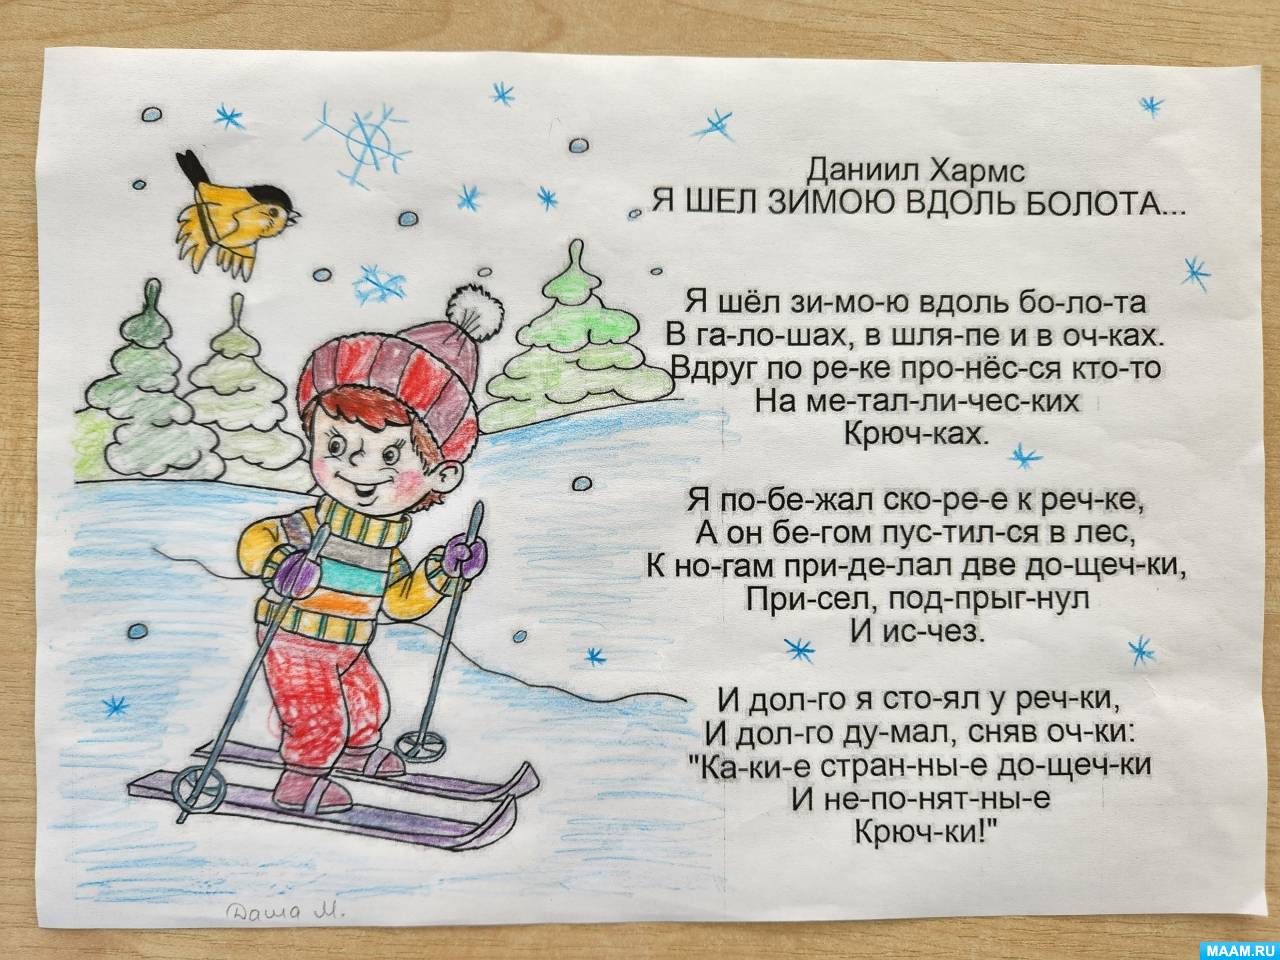 Даниил Хармс
Я ШЕЛ ЗИМОЮ ВДОЛЬ БОЛОТА...
Я шёл зи-мо-ю вдоль бо-ло-та
В га-ло-шах, в шля-пе и в оч-ках.
Вдруг по ре-ке про-нёс-ся кто-то
На ме-тал-ли-чес-ких
Крюч-ках.
Я по-бе-жал ско-ре-е к реч-ке,
А он бе-гом пус-тил-ся в лес,
К но-гам при-де-лал две до-щеч-ки,
При-сел, под-прыг-нул
И ис-чез.
И дол-го я сто-ял у реч-ки,
И дол-го ду-мал, сняв оч-ки:
"Ка-ки-е стран-ны-е до-щеч-ки
И не-по-нят-ны-е
Крюч-ки!"
Даша М.
MAAM.RU